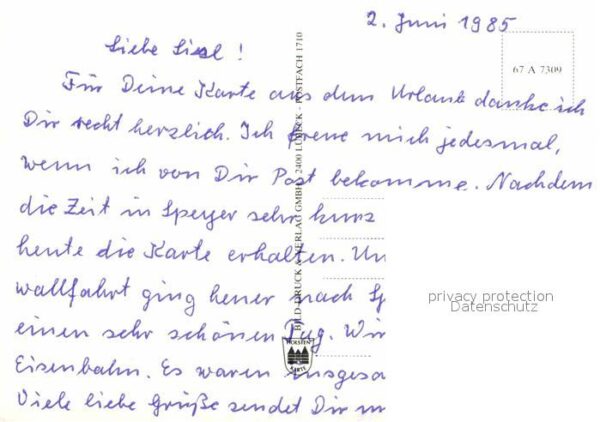 2. Juni 1985
Liebe Liesl !
67 A 7309
Für Deine Karte aus dem Urlaub danke ich
Dir recht herzlich. Ich freue mich jedesmal,
wenn ich von Dir Post bekomme. Nachdem
die Zeit in Speyer sehr kurz
heute die Karte erhalten. Un
wallfahrt ging heuer nach Sp
einen sehr schönen Tag. Wir
Eisenbahn. Es waren insgesa
Viele liebe Grüße sendet Dir
BILD-DRUCK & VERLAG GMBH · 2400 LÜBECK · POSTFACH 1710
HOLSTEN
KARTE
privacy protection
Datenschutz